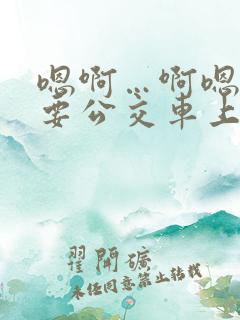 嗯啊…啊嗯
要公交车上
翟開礦
未经同意禁止转载